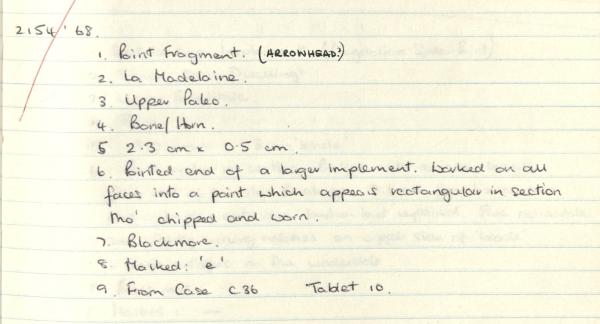 2154'68.
1. Point Fragment. (ARROWHEAD?)
2. La Madelaine.
3. Upper Paleo.
4. Bone/Horn.
5 2.3 cm x 0.5 cm.
6. Pointed end of a larger implement. Worked on all
faces into a point which appears rectangular in section
tho' chipped and worn.
7. Blackmore.
8. Marked: 'e'
9. From Case C36 Tablet 10.